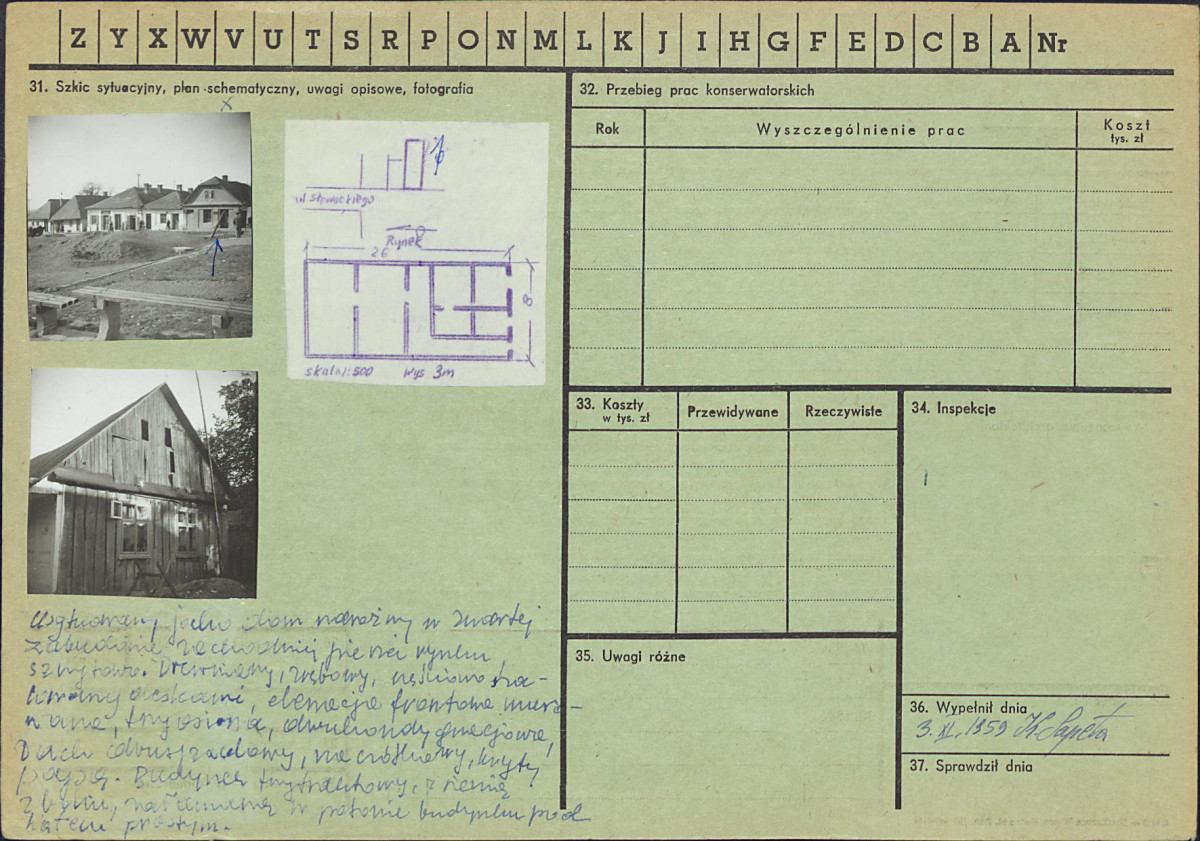 Z Y X W V U T S R P O N M L K J I H G F E D C B A Nr
31. Szkic sytuacyjny, plan schematyczny, uwagi opisowe, fotografia
x
ul Słowackiego
Rynek
26
8
skala 1:500 wys 3m
Usytuowany jako dom narożny w zwartej
zabudowie zachodniej pierzei rynku
szczytowo. Drewniany, zrębowy, częściowo sza-
lowany deskami, elewacja frontowa muro-
wana, trzyosiowa, dwukondygnacjowa,
Dach dwuspadowy, kryty
papą. Budynek trzytraktowy, z sienią
z boku, załamaną w połowie budynku pod
kątem prostym.
32. Przebieg prac konserwatorskich
Rok Wyszczególnienie prac Koszt tys. zł
33. Koszty w tys. zł Przewidywane Rzeczywiste
34. Inspekcje
35. Uwagi różne
36. Wypełnił dnia
3. XI. 1959 K. Sapeta
37. Sprawdził dnia